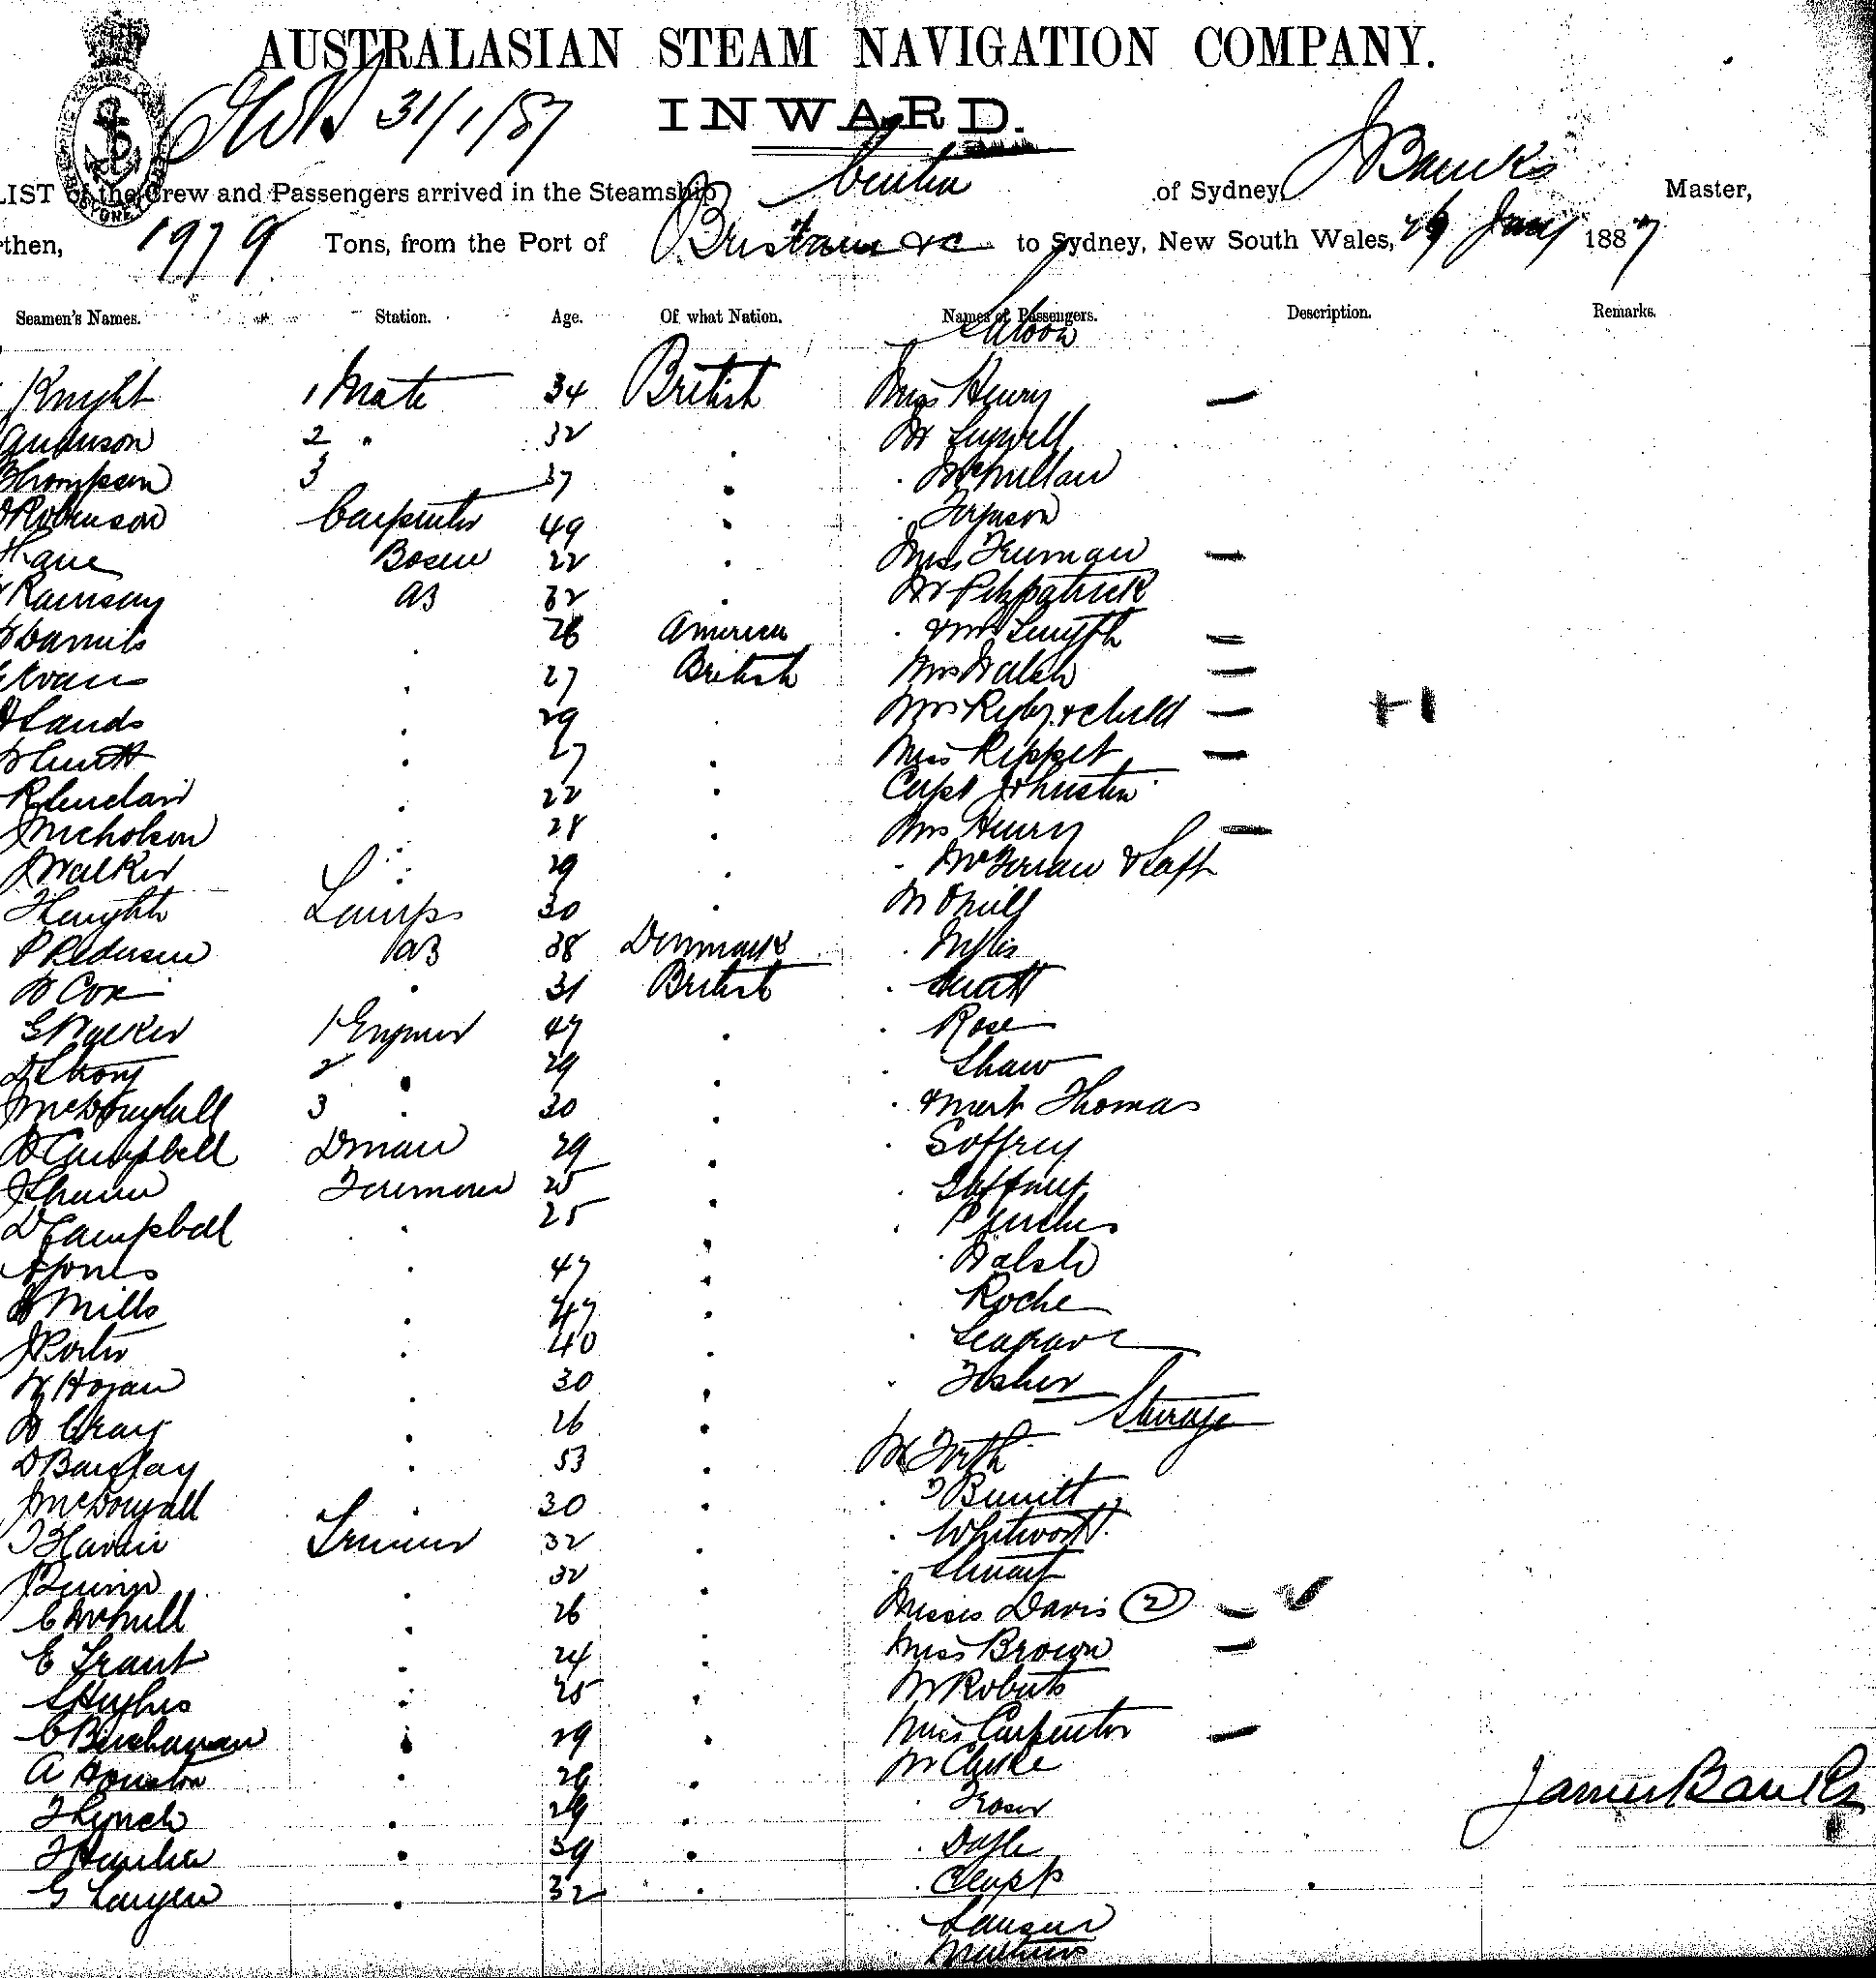 AUSTRALASIAN STEAM NAVIGATION COMPANY.
31/1/87 INWARD.
LIST of the Crew and Passengers arrived in the Steamship of Sydney, J Banks Master,
rthen, 1979 Tons, from the Port of Brisbane &c to Sydney, New South Wales, 29 Jany 1887
Seamen's Names. Station. Age. Of what Nation. Names of Passengers. Description. Remarks.
Saloon
Knight 1 Mate 34 British Miss Henry —
2 " 32 . Mr
Thompson 3 37 . . McMillan
Robinson Carpenter 49 . . Ferguson
Kane Bosun 22 . Mrs Freeman —
Ramsay AB 32 . Mr Fitzpatrick
Daniels . 26 American . & Mrs Smyth —
Evans . 27 British Mrs Walsh —
Sands . 29 . Mrs Rigby & child — + 1
Smith . 27 . Miss Rippet —
R Sinclair . 22 . Capt Johnston
J Nicholson . 28 . Mrs Henry —
J Walker . 29 .
Lamps 30 . Mr ONeill
P Pedersen AB 38 Denmark .
W Cox . 31 British . Smith
G Walker 1 Engineer 47 . . Rose
D Strong 2 . 29 . . Shaw
J McDougall 3 . 30 . . & Mast Thomas
D Campbell Dman 29 . .
Firemen 25 . . Gaffney
D Campbell . 25 . .
Jones . 47 . . Walsh
Mills . 47 . . Roche
J Porter . 40 . . Seagrave
W Hogan . 30 . . Fisher
Steerage
W Craig . 26 . Mr Forth
D Barclay . 53 . .
J McDougall . 30 . . Whitworth
Trimmer 32 . . Stuart
J Quinn . 32 . Misses Davis (2) —
C McNeill . 26 . Miss Brown —
E Grant . 24 . Mr Roberts
S Hughes . 25 . Miss Carpenter —
C Buchanan . 29 . Mr Clarke
A Houston . 26 . . Fraser James Banks
T Lynch . 29 . . Doyle
. 39 . . Clapp
G . 32 .
. Mathews